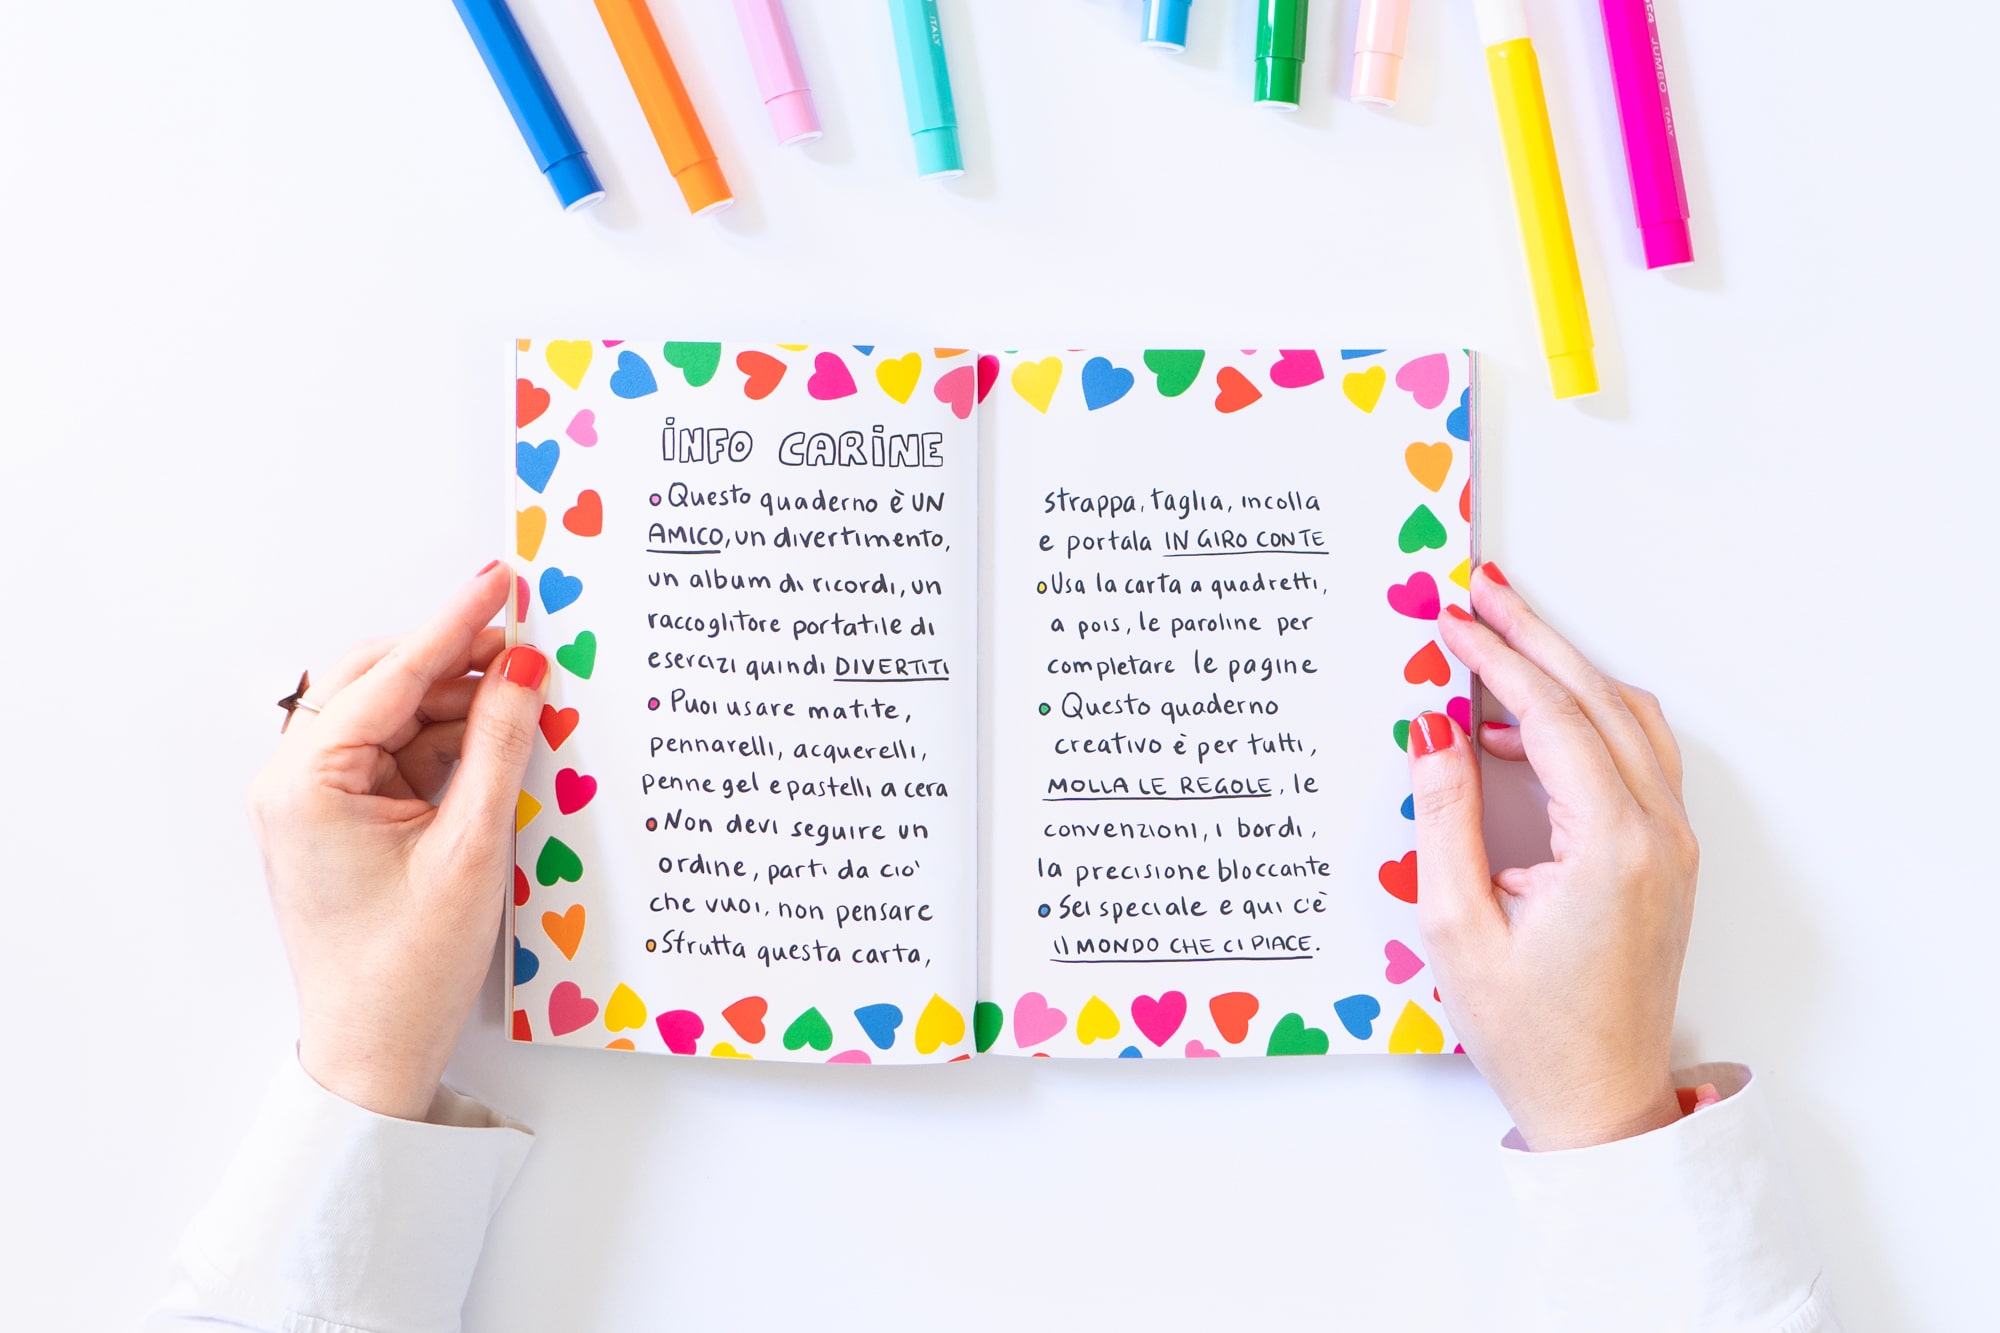 ITALY
OCA JUMBO ITALY
iNFO CARiNE
Questo quaderno è UN
AMICO, un divertimento,
un album di ricordi, un
raccoglitore portatile di
esercizi quindi DIVERTITI
Puoi usare matite,
pennarelli, acquerelli,
penne gel e pastelli a cera
Non devi seguire un
ordine, parti da cio'
che vuoi, non pensare
Sfrutta questa carta,
strappa, taglia, incolla
e portala IN GIRO CON TE
Usa la carta a quadretti,
a pois, le paroline per
completare le pagine
Questo quaderno
creativo è per tutti,
MOLLA LE REGOLE, le
convenzioni, i bordi,
la precisione bloccante
Sei speciale e qui c'è
il MONDO CHE CI PIACE.